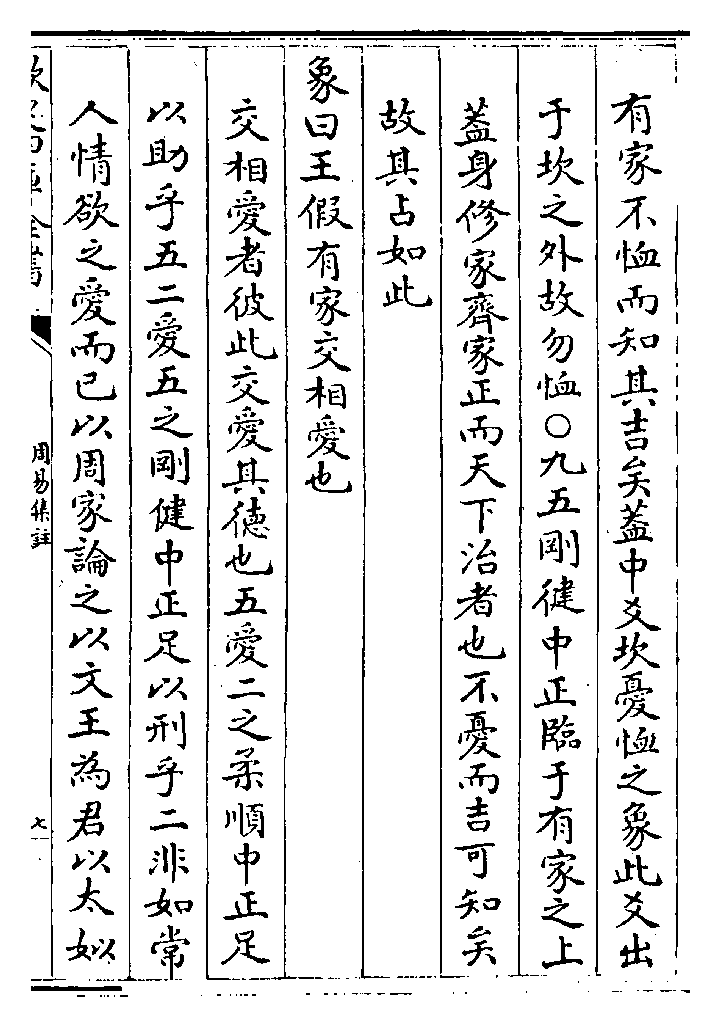 有家不恤而知其吉矣蓋中爻坎憂恤之象此爻出
于坎之外故勿恤○九五剛健中正臨于有家之上
蓋身修家齊家正而天下治者也不憂而吉可知矣
故其占如此
象曰王假有家交相愛也
交相愛者彼此交愛其德也五愛二之柔順中正足
以助乎五二愛五之剛健中正足以刑乎二非如常
人情欲之愛而已以周家論之以文王為君以太姒
欽定四庫全書
周易集註
七